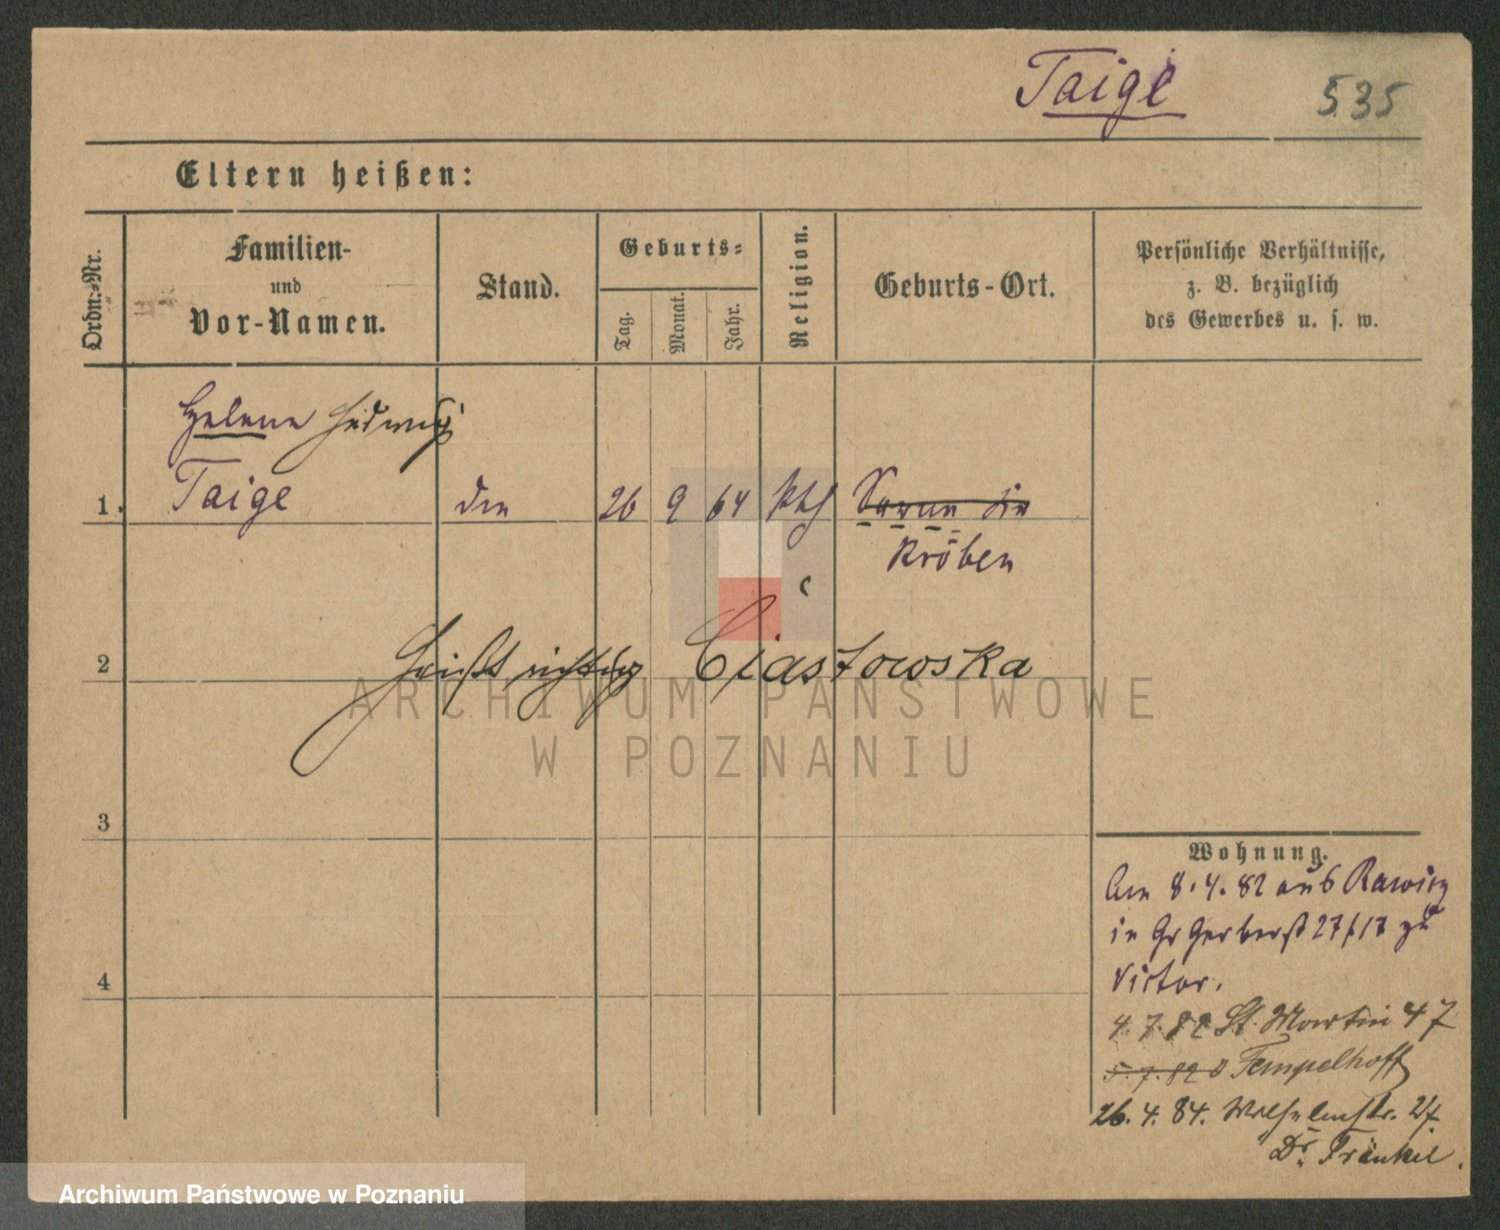 Taige 535
Eltern heißen:
Ordn.-Nr.
Familien-
und
Vor-Namen.
Stand.
Geburts-
Tag.
Monat.
Jahr.
Religion.
Geburts-Ort.
Persönliche Verhältnisse,
z. B. bezüglich
des Gewerbes u. s. w.
Helene Hedwig
1. Taige 26 9 64 kth
Kröben
2 heißt richtig Ciastowska
3
4
Wohnung.
Am 8.4.82 aus Rawicz
in Gr Gerberst 27/17 zu
Victor.
4.7.82 St. Martin 47
5.7.82 Tempelhoff
26.4.84. Wilhelmstr. 27.
Dr. Fränkel.
ARCHIWUM PAŃSTWOWE
W POZNANIU
Archiwum Państwowe w Poznaniu